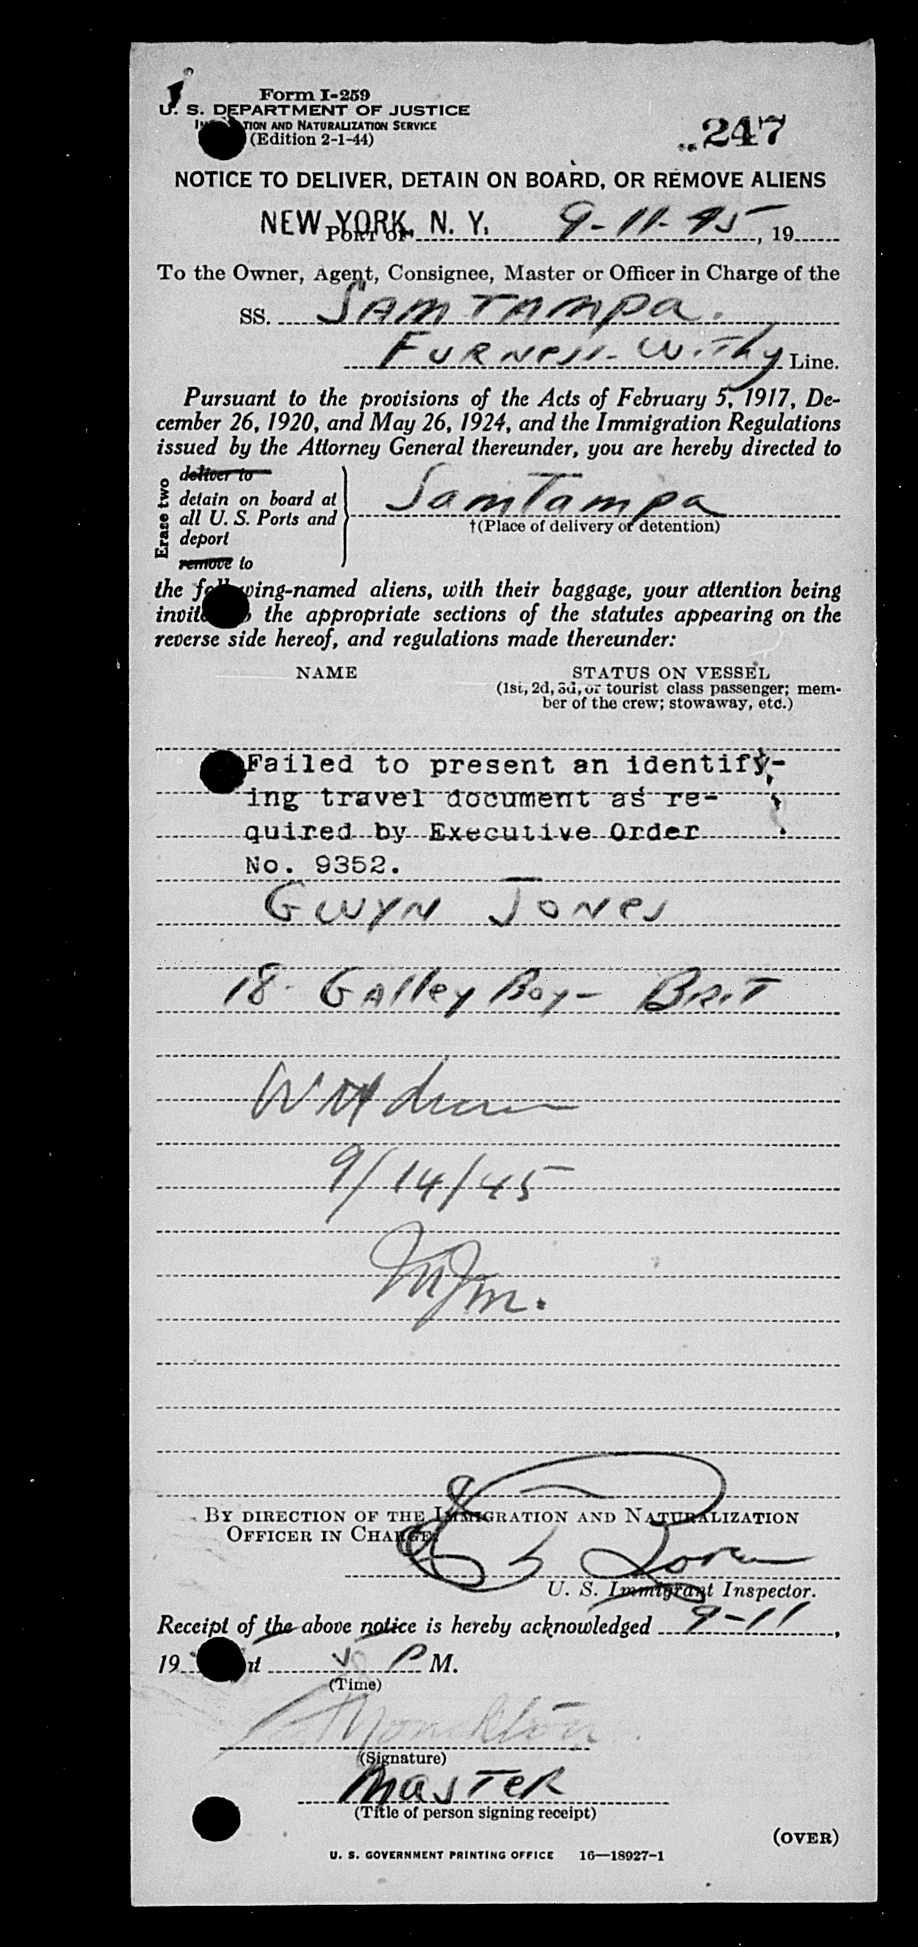 Form I-259
U. S. DEPARTMENT OF JUSTICE
TION AND NATURALIZATION SERVICE
(Edition 2-1-44)
247
NOTICE TO DELIVER, DETAIN ON BOARD, OR REMOVE ALIENS
NEW YORK, N. Y. PORT OF 9-11-45, 19
To the Owner, Agent, Consignee, Master or Officer in Charge of the
SS. SAMTAMPA.
FURNESS-WITHY Line.
Pursuant to the provisions of the Acts of February 5, 1917, De-
cember 26, 1920, and May 26, 1924, and the Immigration Regulations
issued by the Attorney General thereunder, you are hereby directed to
Erase two
deliver to
detain on board at
all U. S. Ports and
deport
remove to
SamTampa
†(Place of delivery or detention)
the following-named aliens, with their baggage, your attention being
invit the appropriate sections of the statutes appearing on the
reverse side hereof, and regulations made thereunder:
NAME STATUS ON VESSEL
(1st, 2d, 3d, or tourist class passenger; mem-
ber of the crew; stowaway, etc.)
Failed to present an identify-
ing travel document as re-
quired by Executive Order
No. 9352.
GWYN JONES
18- GAlley Boy- BRIT
9/14/45
BY DIRECTION OF THE IMMIGRATION AND NATURALIZATION
OFFICER IN CHARGE:
U. S. Immigrant Inspector.
Receipt of the above notice is hereby acknowledged 9-11,
19 at P M.
(Time)
(Signature)
MASTER
(Title of person signing receipt)
(OVER)
U. S. GOVERNMENT PRINTING OFFICE 16—18927-1